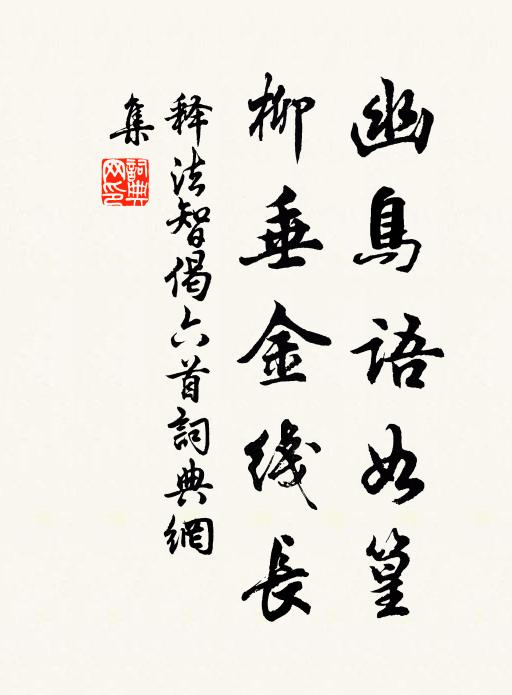 幽鳥語如篁
柳垂金线長
释法智偈六首詞典網
集
詞典
网印